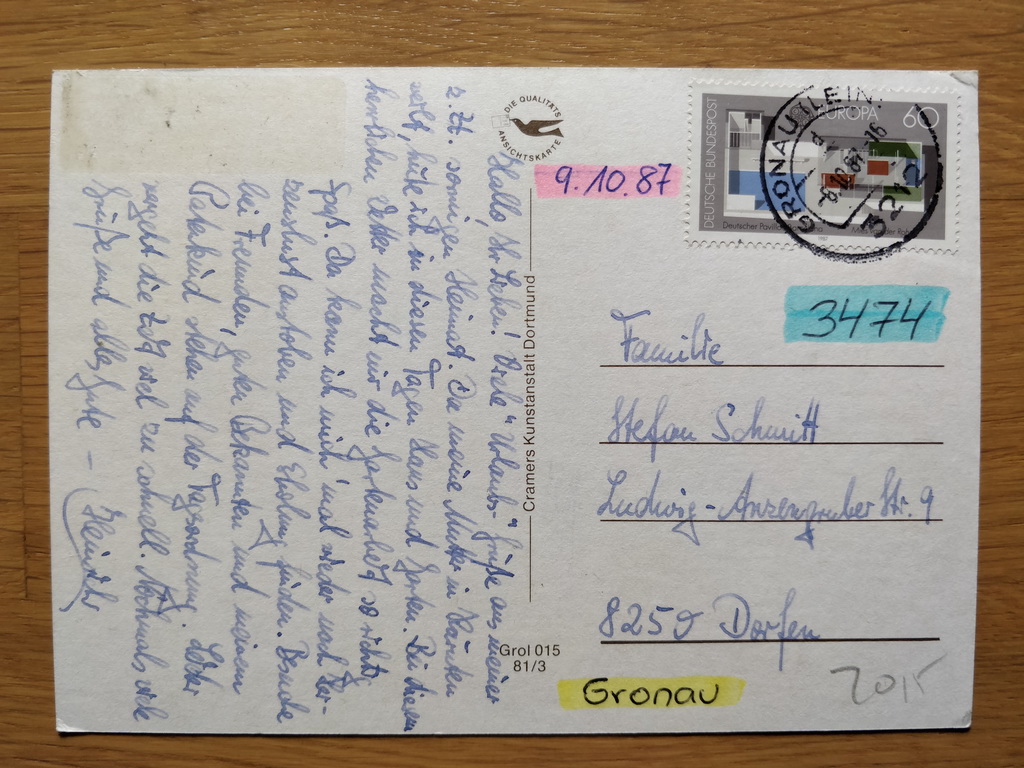 Hallo, Ihr Lieben! Viele "Urlaubs"-Grüße aus meiner
z. Zt. sonnigen Heimat. Da meine Mutter in Kärnten
weilt, hüte ich in diesen Tagen Haus und Garten. Bei diesem
herrlichen Wetter macht mir die Gartenarbeit so richtig
Spaß. Da kann ich mich mal wieder nach Her-
zenslust austoben und Erholung finden. Besuche
bei Freunden, guten Bekannten und meinem
Patenkind stehen auf der Tagesordnung. Leider
vergeht die Zeit viel zu schnell. Nochmals viele
Grüße und alles Gute –
DIE QUALITÄTS
ANSICHTSKARTE
9.10.87
Cramers Kunstanstalt Dortmund
Grol 015
81/3
Gronau
DEUTSCHE BUNDESPOST
EUROPA
60
Deutscher Pavillon
GRONAU (LEINE)
3212
3474
Familie
Stefan Schmitt
Ludwig-Anzengruber Str. 9
8250 Dorfen
2015